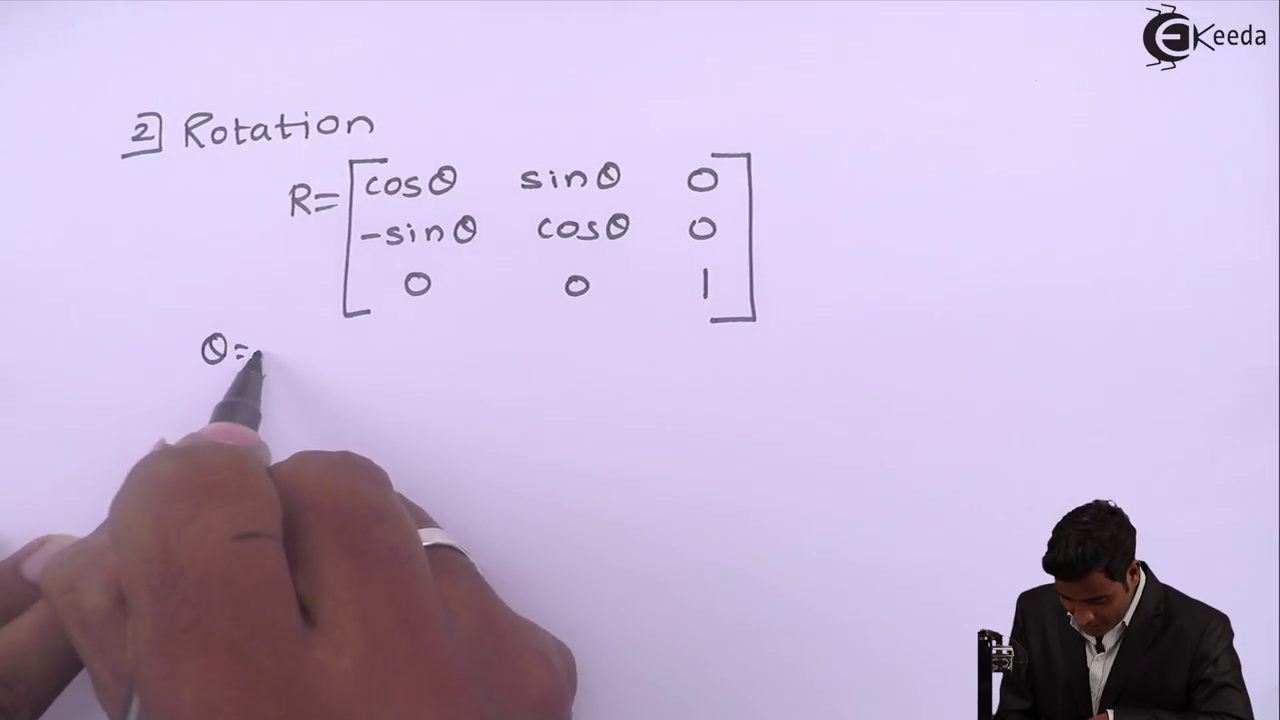 EKeeda
2] Rotation
R= [cosθ sinθ 0
-sinθ cosθ 0
0 0 1]
θ=